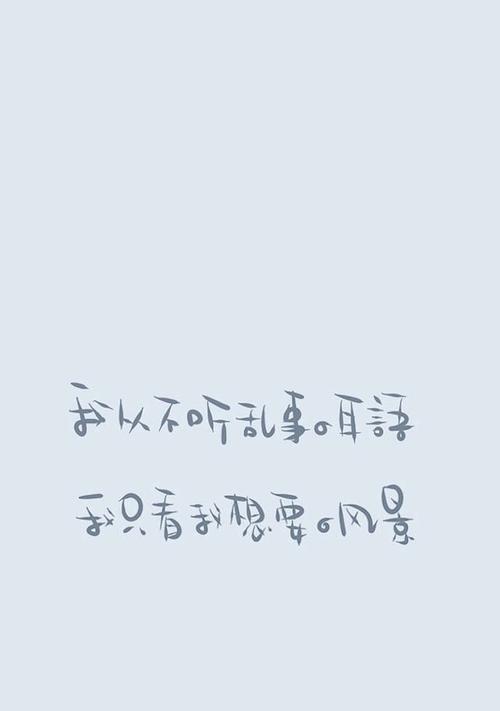 我从不听乱事の耳語
我只看我想要の风景